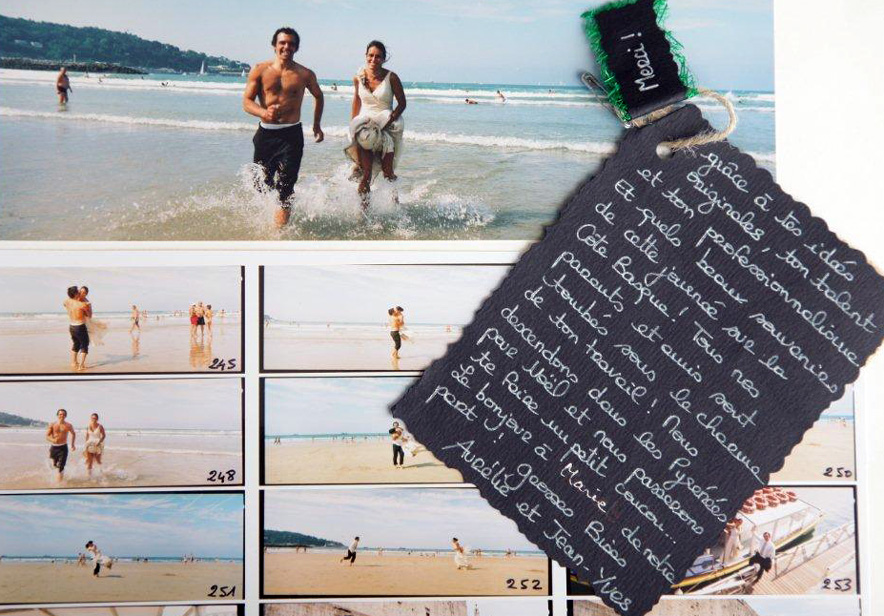 Merci !
grâce à tes idées
originales, ton talent
et ton professionnalisme
Et quels beaux souvenirs
de cette journée sur la
Côte Basque ! Tous nos
parents et amis sont
tombés sous le charme
de ton travail ! Nous
descendons dans les Pyrénées
pour Noël et nous passerons
te faire un petit coucou...
Le bonjour à Marie de notre
part ! Grosses Bises
Aurélie et Jean-Yves
245
248
250
251
252
253